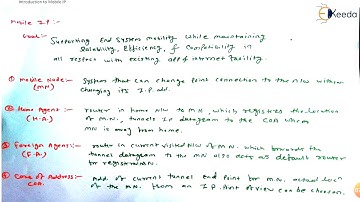 Introduction to Mobile IP
Ekeeda
Mobile IP:-
Goal:- Supporting End System mobility while maintaining
Scalability, Efficiency, & Compatibility in
all respects with existing app & internet facility.
① Mobile Node:- System that can change point connection to the N/w without
(MN) changing its I.P. add.
② Home Agent:- router in home N/w to M.N. which registers the location
(H.A.) of M.N., tunnels IP datagram to the COA when
MN is away from home.
③ Foreign Agent:- router in current visited N/w of M.N. which forwards the
(F.A.) tunnel datagram to the MN also acts as default router
for registration.
④ Care of Address:- Add. of current tunnel end point for M.N. actual locn
COA. of the MN. from an I.P. Point of view can be choosen.